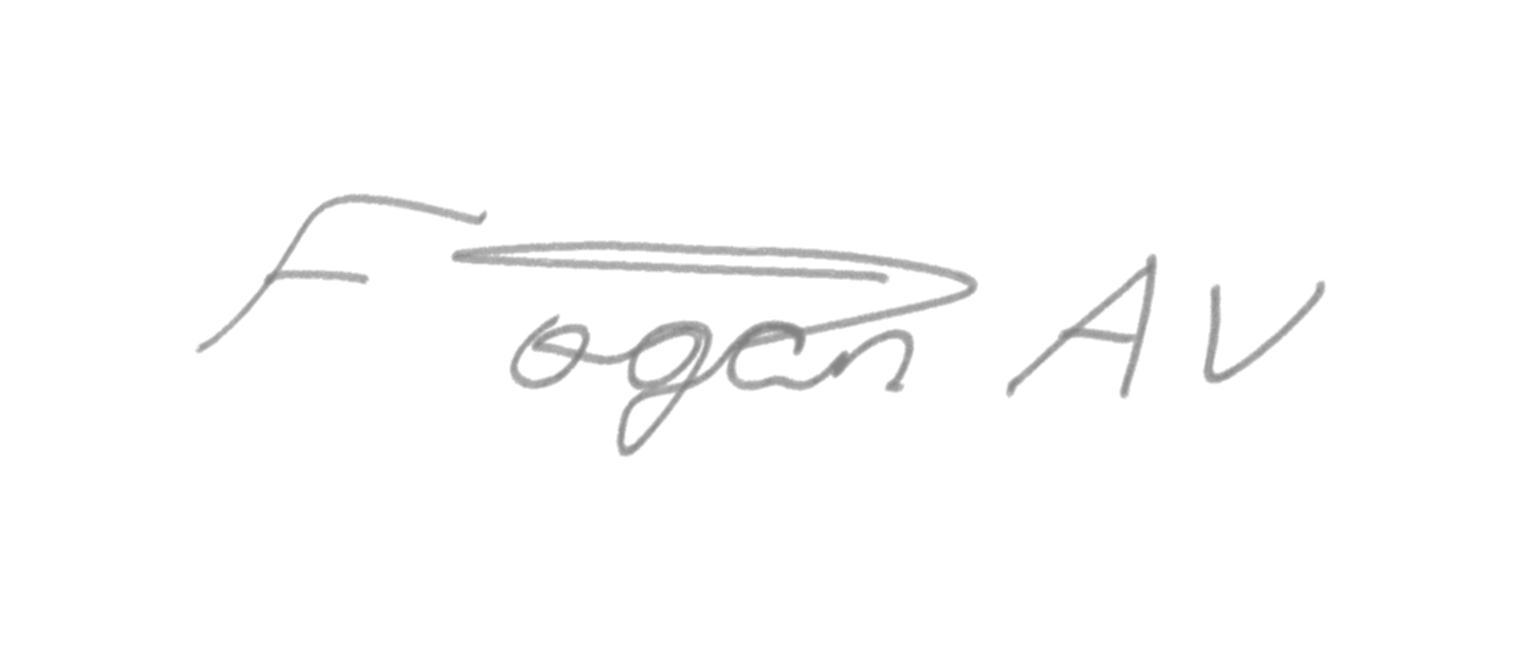 Fogan AV